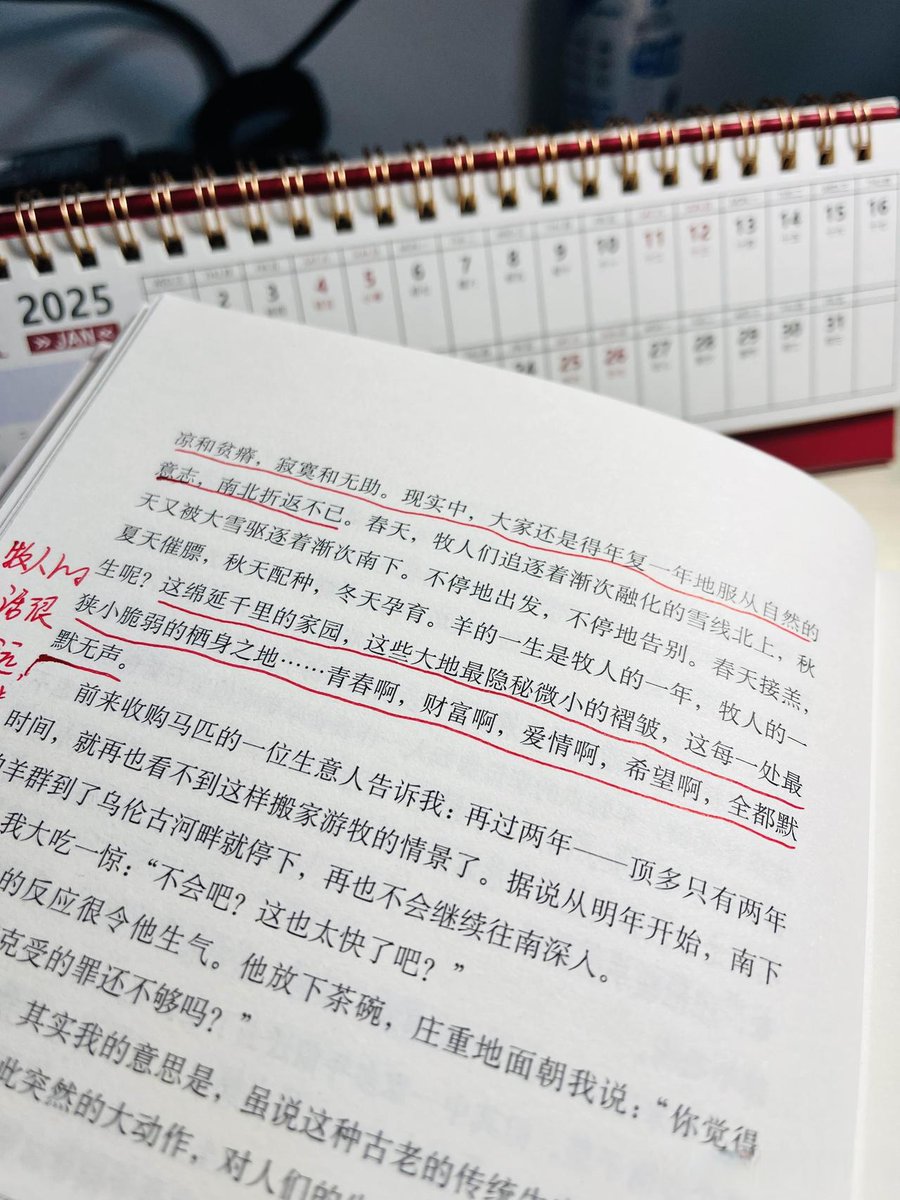 2025
» JAN «
2 3 4 5 6 7 8 9 10 11 12 13 14 15 16
24 25 26 27 28 29 30 31
凉和贫瘠，寂寞和无助。现实中，大家还是得年复一年地服从自然的
意志，南北折返不已。春天，牧人们追逐着渐次融化的雪线北上，秋
天又被大雪驱逐着渐次南下。不停地出发，不停地告别。春天接羔，
夏天催膘，秋天配种，冬天孕育。羊的一生是牧人的一年，牧人的一
生呢？这绵延千里的家园，这些大地最隐秘微小的褶皱，这每一处最
狭小脆弱的栖身之地……青春啊，财富啊，爱情啊，希望啊，全都默
默无声。
前来收购马匹的一位生意人告诉我：再过两年——顶多只有两年
时间，就再也看不到这样搬家游牧的情景了。据说从明年开始，南下
羊群到了乌伦古河畔就停下，再也不会继续往南深入。
我大吃一惊：“不会吧？这也太快了吧？”
的反应很令他生气。他放下茶碗，庄重地面朝我说：“你觉得
克受的罪还不够吗？”
其实我的意思是，虽说这种古老的传统
此突然的大动作，对人们的
牧人的